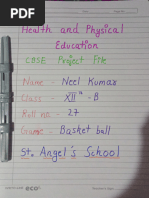 Health and Physical
Education
CBSE Project File
Name - Neel Kumar
Class - XIIth - B
Roll no. - 27
Game - Basket ball
St. Angel's School
eco